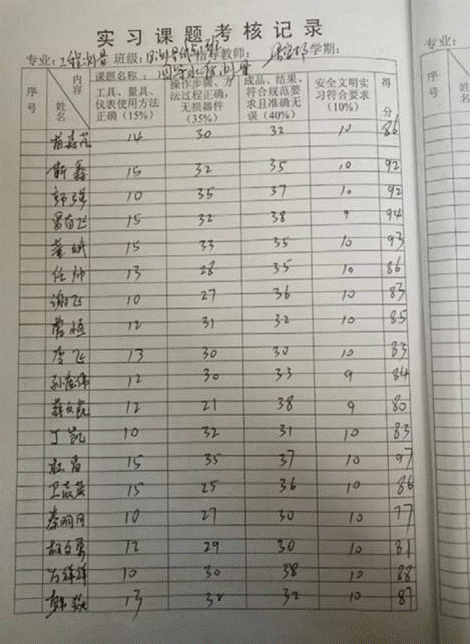 实习课题考核记录
专业：工程测量 班级： 指导教师： 学期：
序号 内容 姓名 课题名称：四等水准测量 得分
工具、量具、仪表使用方法正确（15%） 操作步骤、方法过程正确，无损器件（35%） 成品、结果、符合规范要求且准确无误（40%） 安全文明实习符合要求（10%）
14 30 32 10 86
斯鑫 15 32 35 10 92
郭强 10 35 37 10 92
15 32 38 9 94
董斌 15 33 35 10 93
任帅 13 28 35 10 86
谢飞 10 27 36 10 83
常恒 12 31 32 10 85
李飞 13 30 30 10 83
孙鑫伟 12 30 33 9 84
12 21 38 9 80
丁凯 10 32 31 10 83
杜磊 15 35 37 10 97
卫 15 25 36 10 86
秦明月 10 27 30 10 77
12 29 30 10 81
10 30 38 10 88
郭 13 32 32 10 87